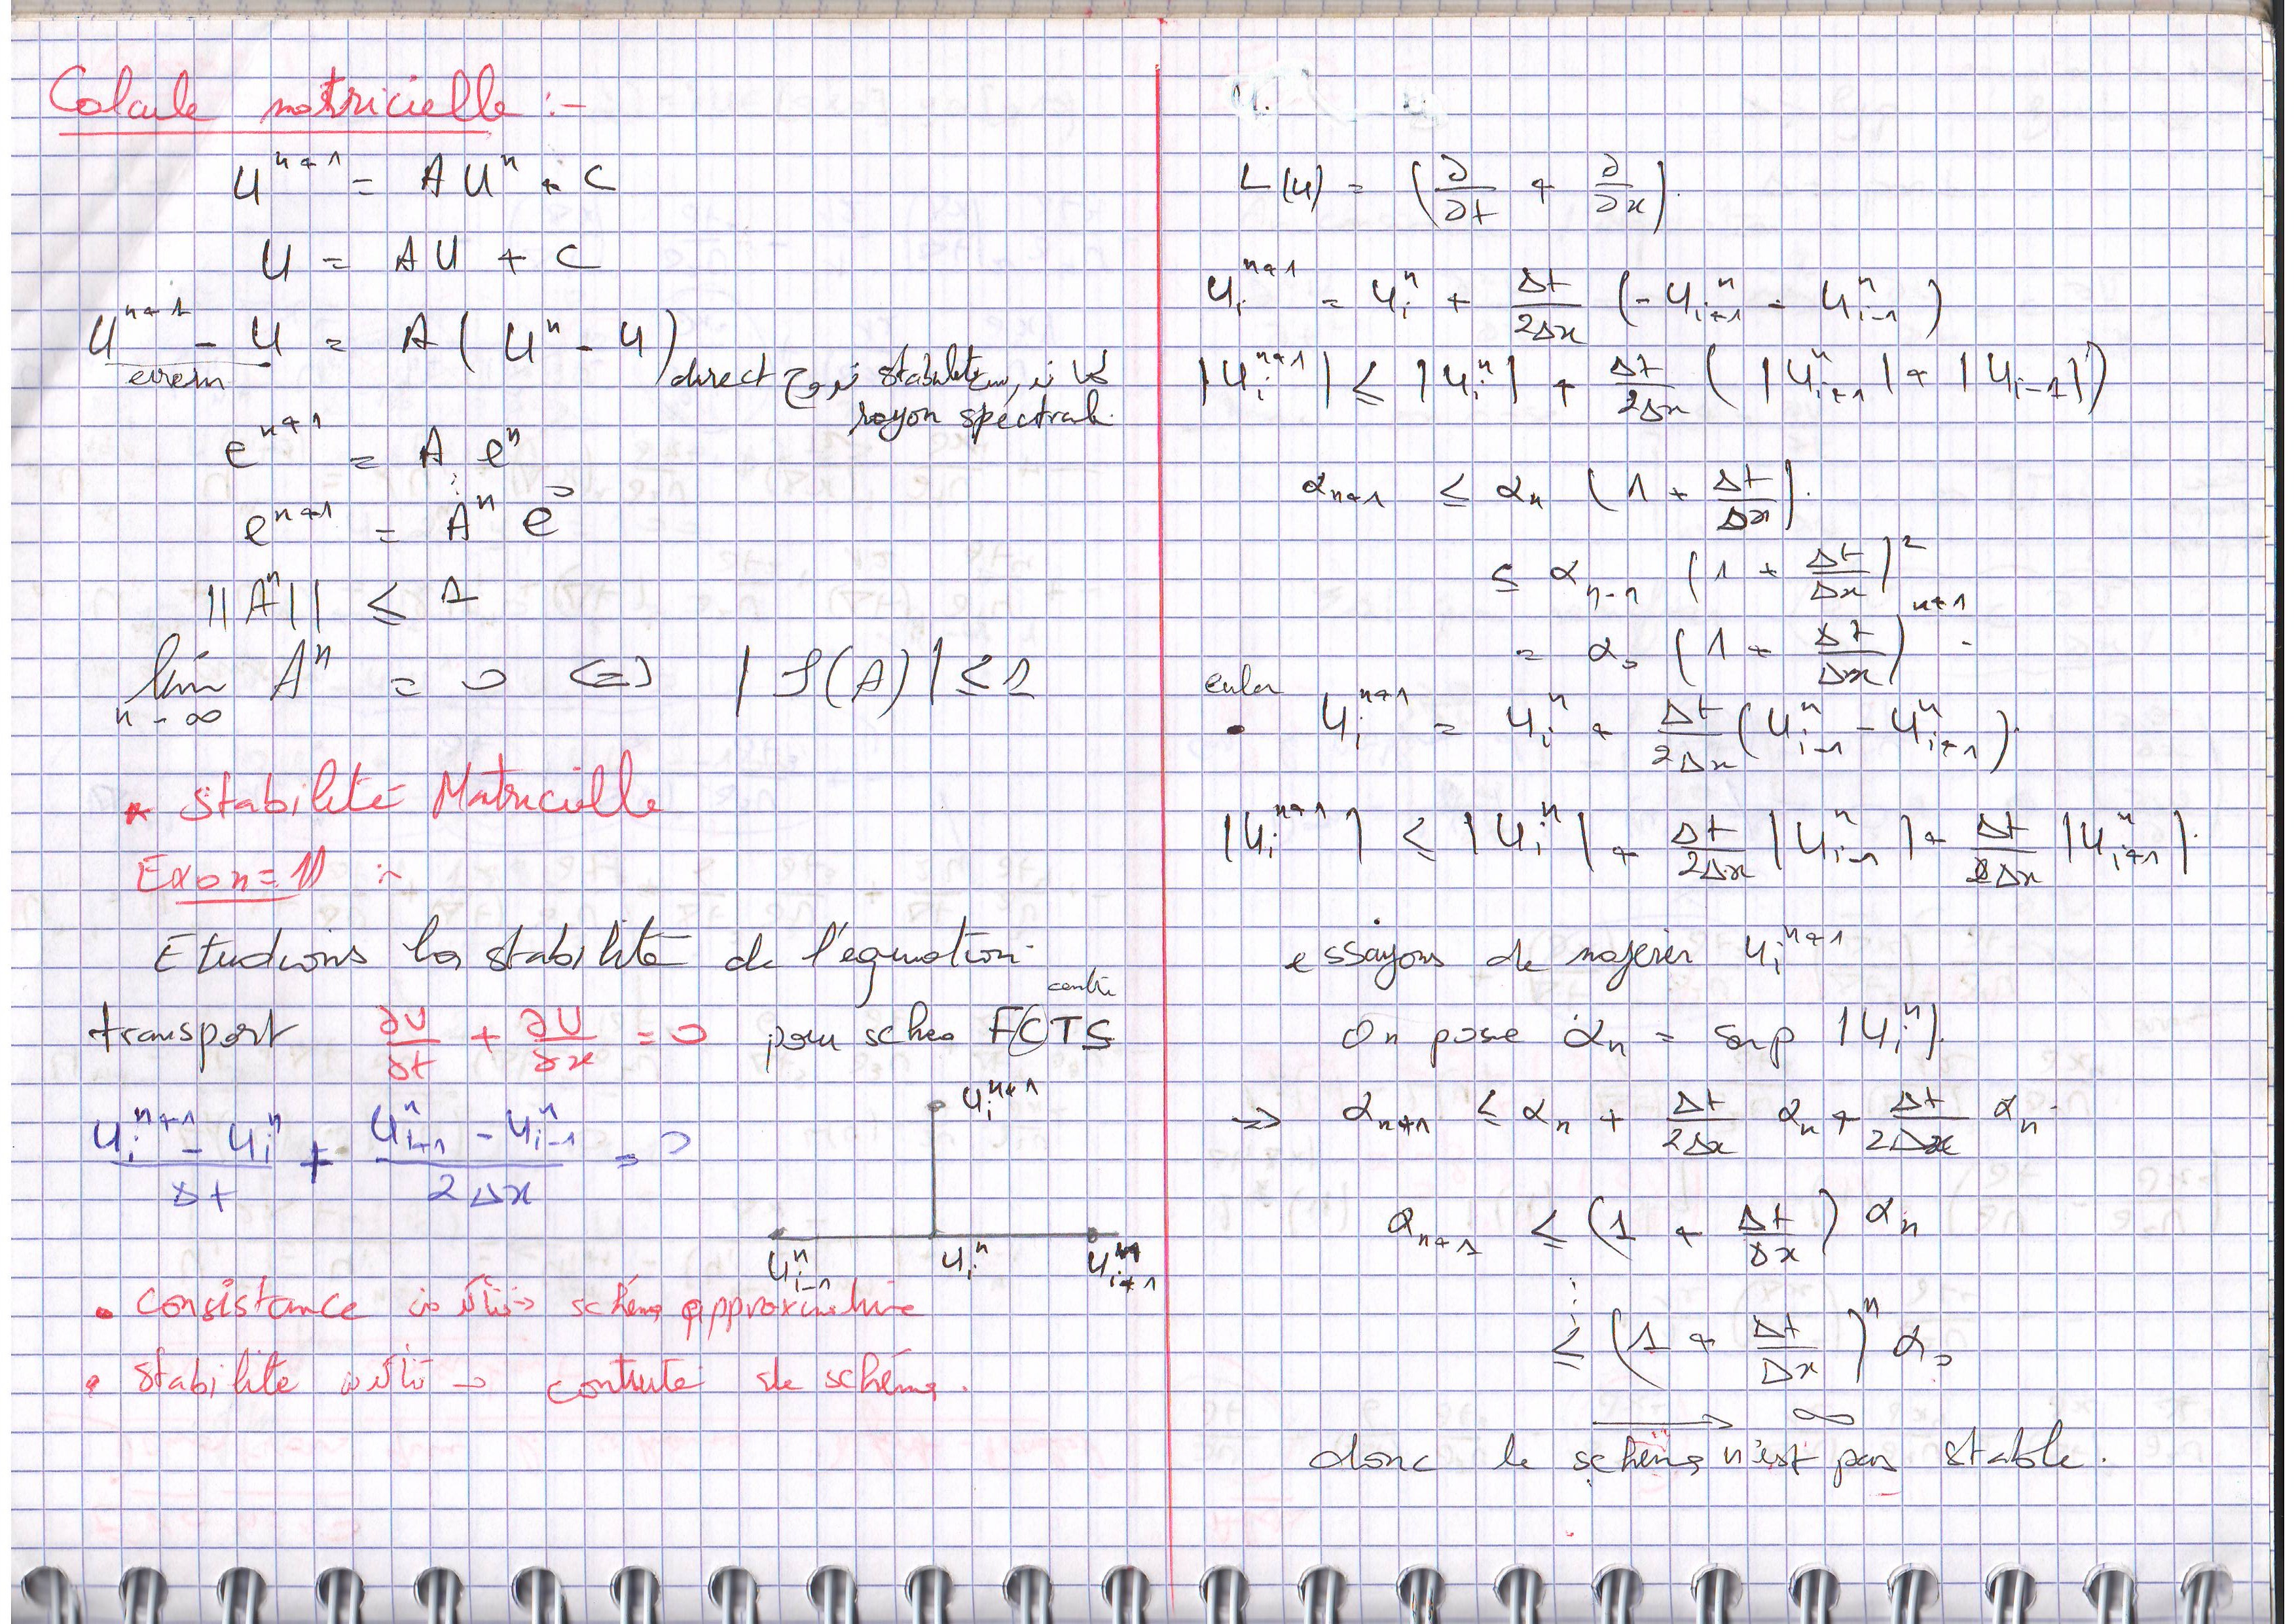 Calcule matricielle :-
U^{n+1} = A U^n + C
U = A U + C
U^{n+1} - U = A ( U^n - U )
direct stabilité
rayon spectral.
e^{n+1} = A e^n
⋮
e^{n+1} = A^n e°
||A^n|| ≤ 1
lim_{n→∞} A^n = 0 <=> | ρ(A) | ≤ 1
* Stabilité Matricielle
Exo n=1 :-
Etudions la stabilité de l'équation
transport ∂U/∂t + ∂U/∂x = 0 pour schéma FCTS
centré
(U_i^{n+1} - U_i^n)/Δt + (U_{i+1}^n - U_{i-1}^n)/2Δx = 0
U_i^{n+1}
U_{i-1}^n U_i^n U_{i+1}^n
• Consistance schéma
• Stabilité → de schéma.
L(u) = (∂/∂t + ∂/∂x).
U_i^{n+1} = U_i^n + Δt/2Δx (-U_{i+1}^n - U_{i-1}^n)
|U_i^{n+1}| ≤ |U_i^n| + Δt/2Δx ( |U_{i+1}^n| + |U_{i-1}| )
α_{n+1} ≤ α_n (1 + Δt/Δx).
≤ α_{n-1} (1 + Δt/Δx)^2
= α_0 (1 + Δt/Δx)^{n+1}.
euler
• U_i^{n+1} = U_i^n + Δt/2Δx (U_{i-1}^n - U_{i+1}^n).
|U_i^{n+1}| ≤ |U_i^n| + Δt/2Δx |U_{i-1}^n| + Δt/2Δx |U_{i+1}^n|.
essayons de majerer U_i^{n+1}
On pose α_n = sup |U_i^n|.
=> α_{n+1} ≤ α_n + Δt/2Δx α_n + Δt/2Δx α_n.
α_{n+1} ≤ (1 + Δt/Δx) α_n
⋮
≤ (1 + Δt/Δx)^n α_0
→ ∞
donc le schéma n'est pas stable.